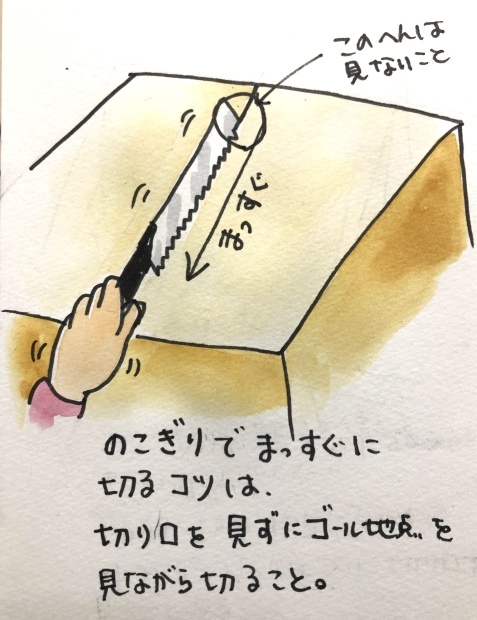 このへんは
見ないこと
まっすぐ
のこぎりでまっすぐに
切るコツは、
切り口を見ずにゴール地点を
見ながら切ること。